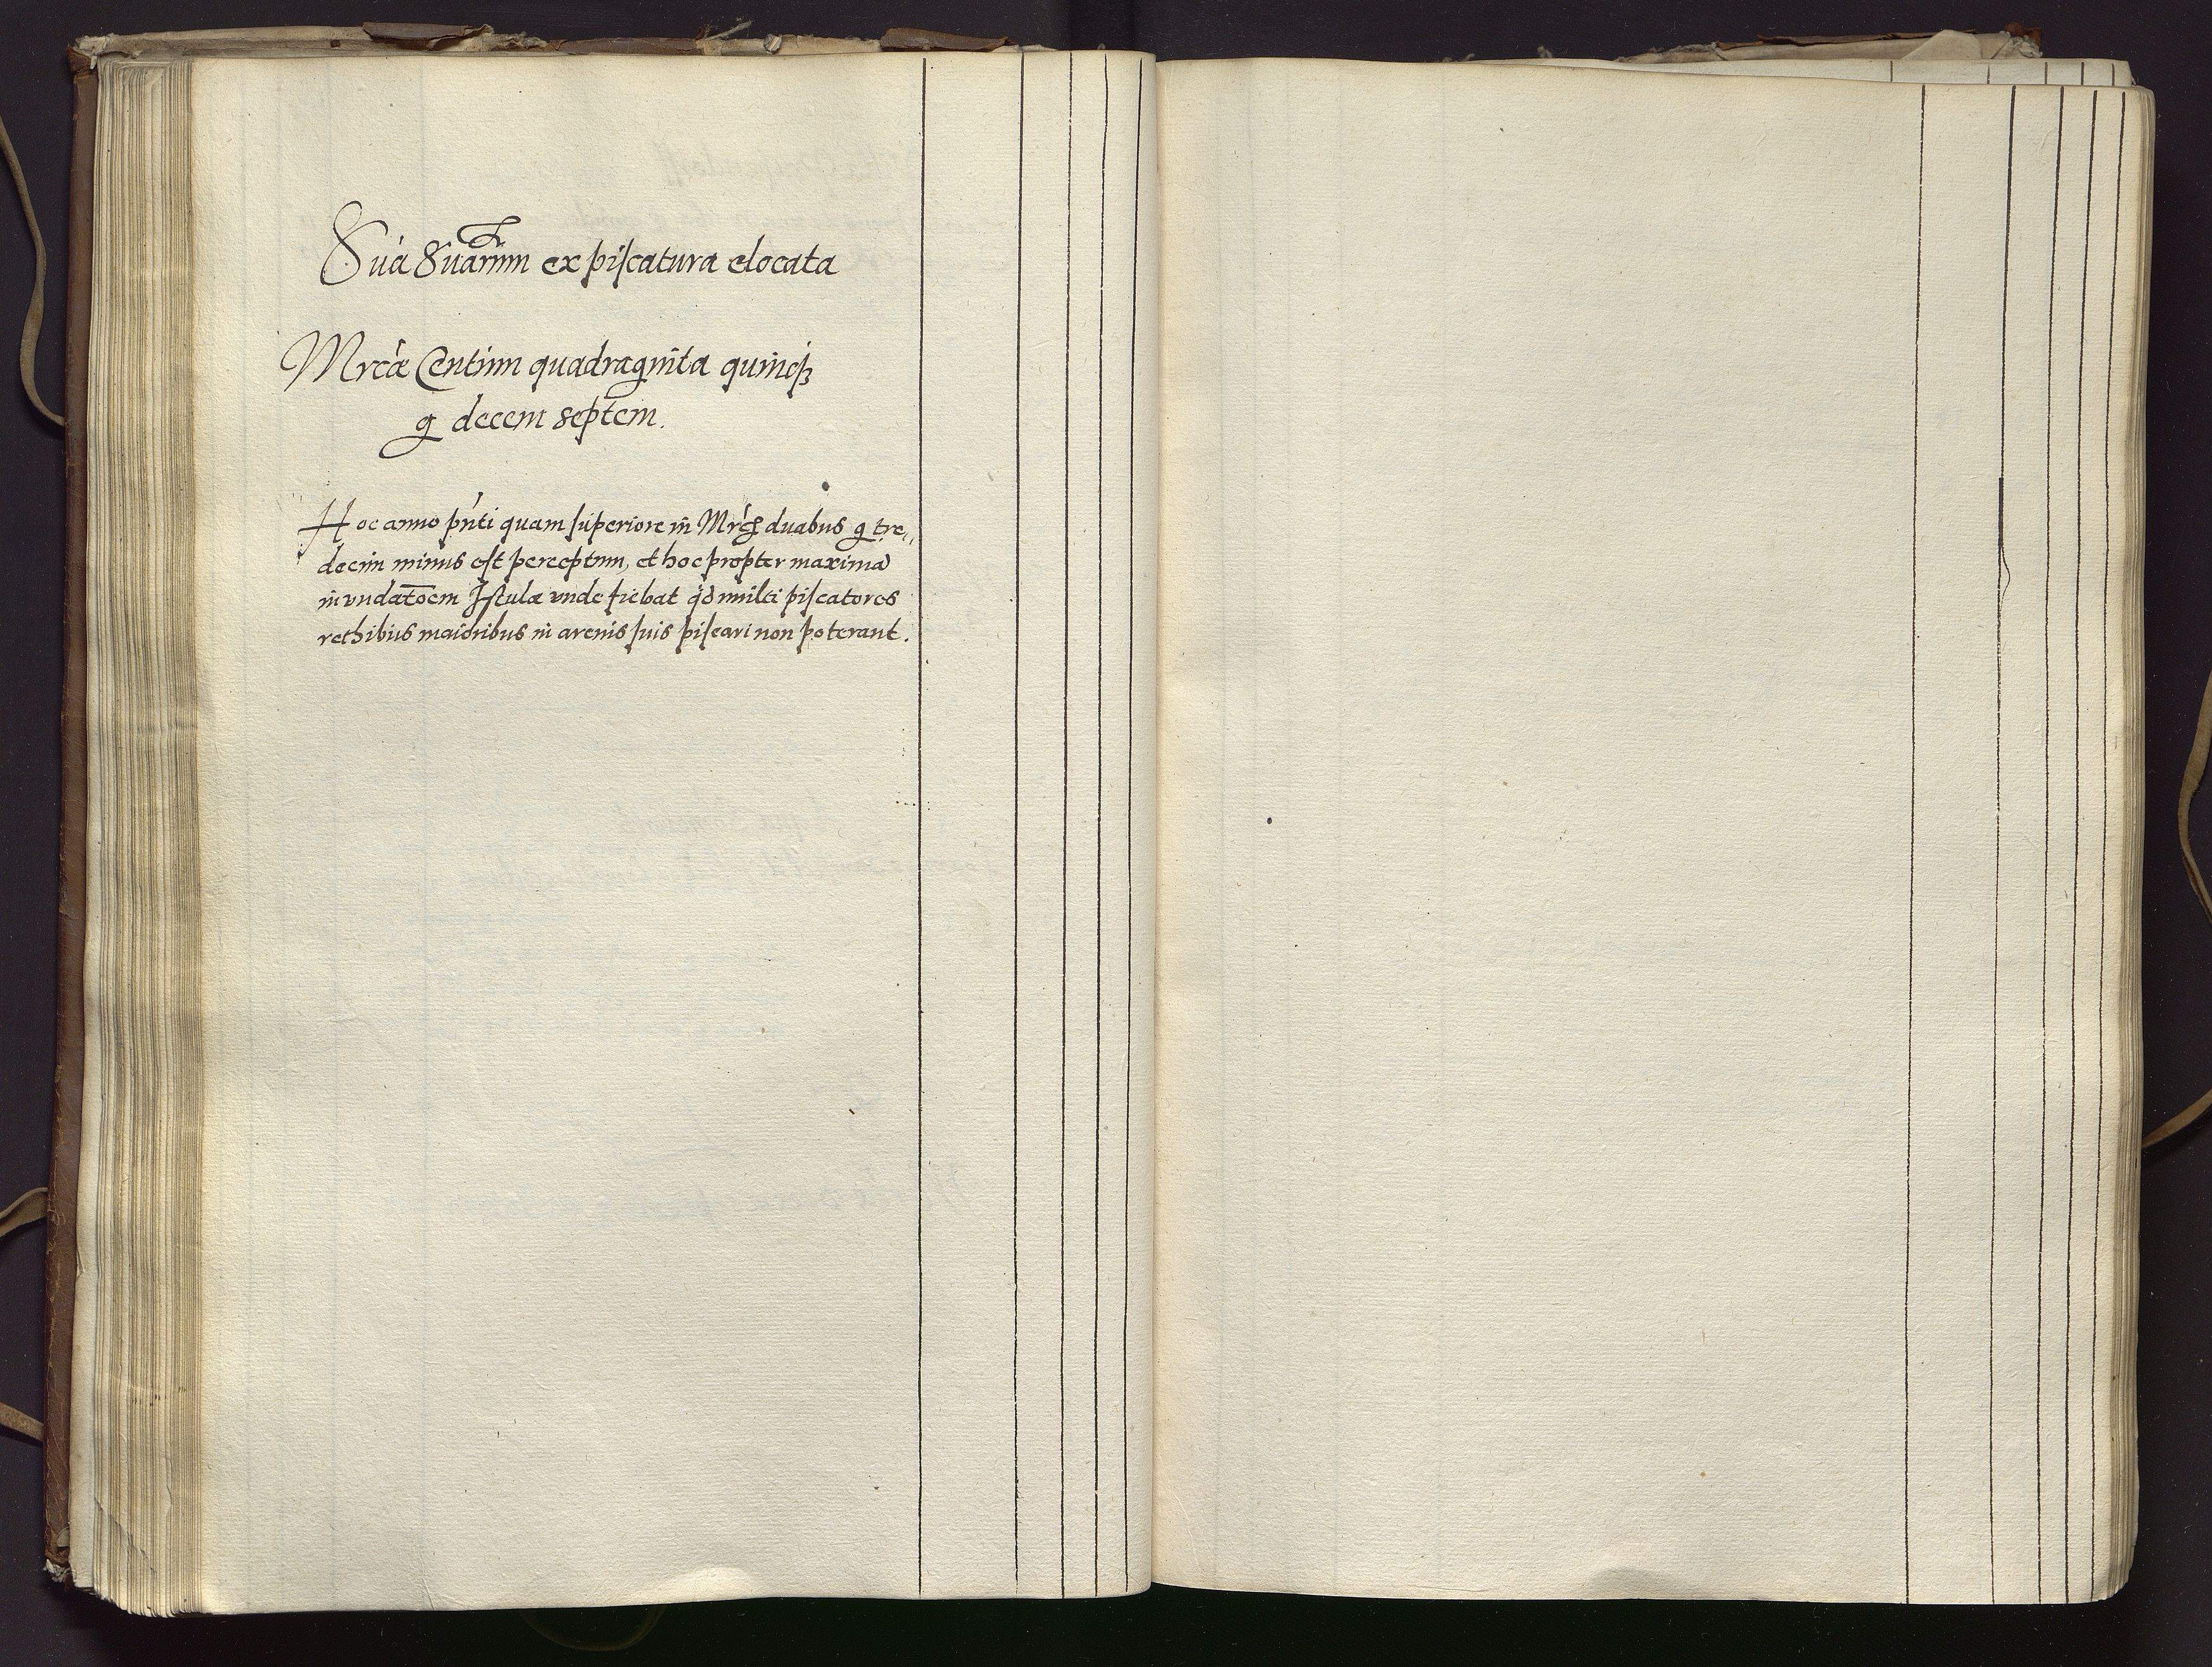 Sua̅ Suaru̅m ex piscatura elocata
Mrcæ Centum quadraginta quinq3
g decem septem.
Hoc anno pn̅ti quam superiore in Mrc̅ duabus g tre„
decim minus est perceptum, et hoc propter maxima̅
inundatōem Istulæ vnde fiebat qd multi piscatores
rethibus maioribus in arenis suis piscari non poterant.